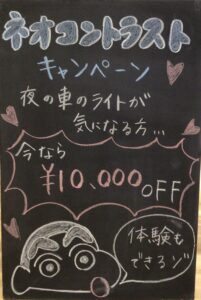 ネオコントラスト
キャンペーン
夜の車のライトが
気になる方...
今なら
¥10,000OFF
体験も
できるゾ